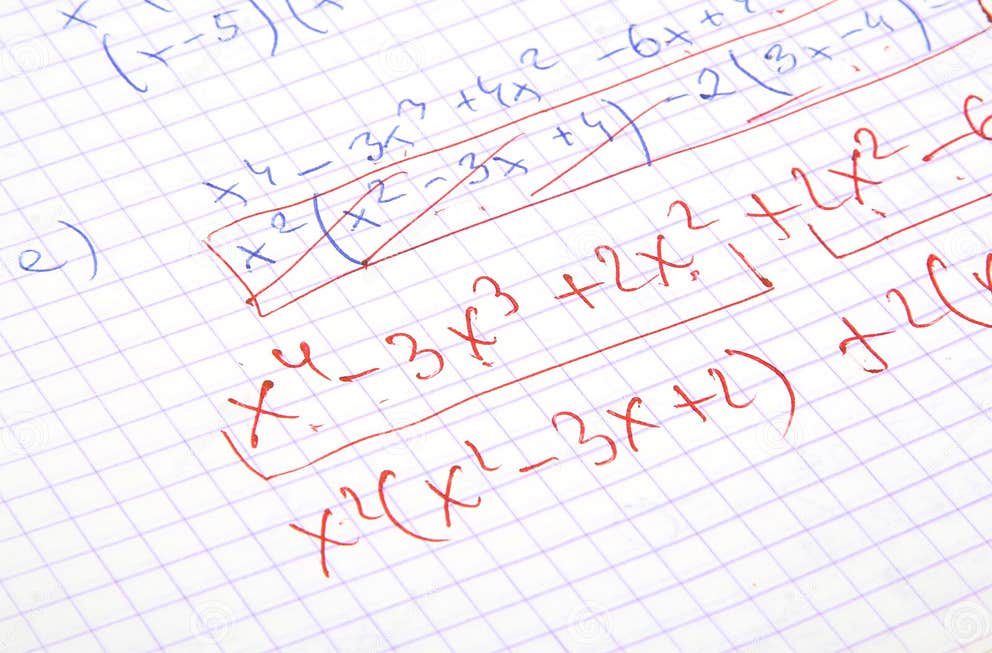 x
(x-5)(x
x⁴ - 3x³ + 4x² - 6x +
e) x²(x² - 3x + 4) - 2(3x - 4)
x⁴ - 3x³ + 2x² + 2x² - 6
x²(x² - 3x + 2) + 2(x